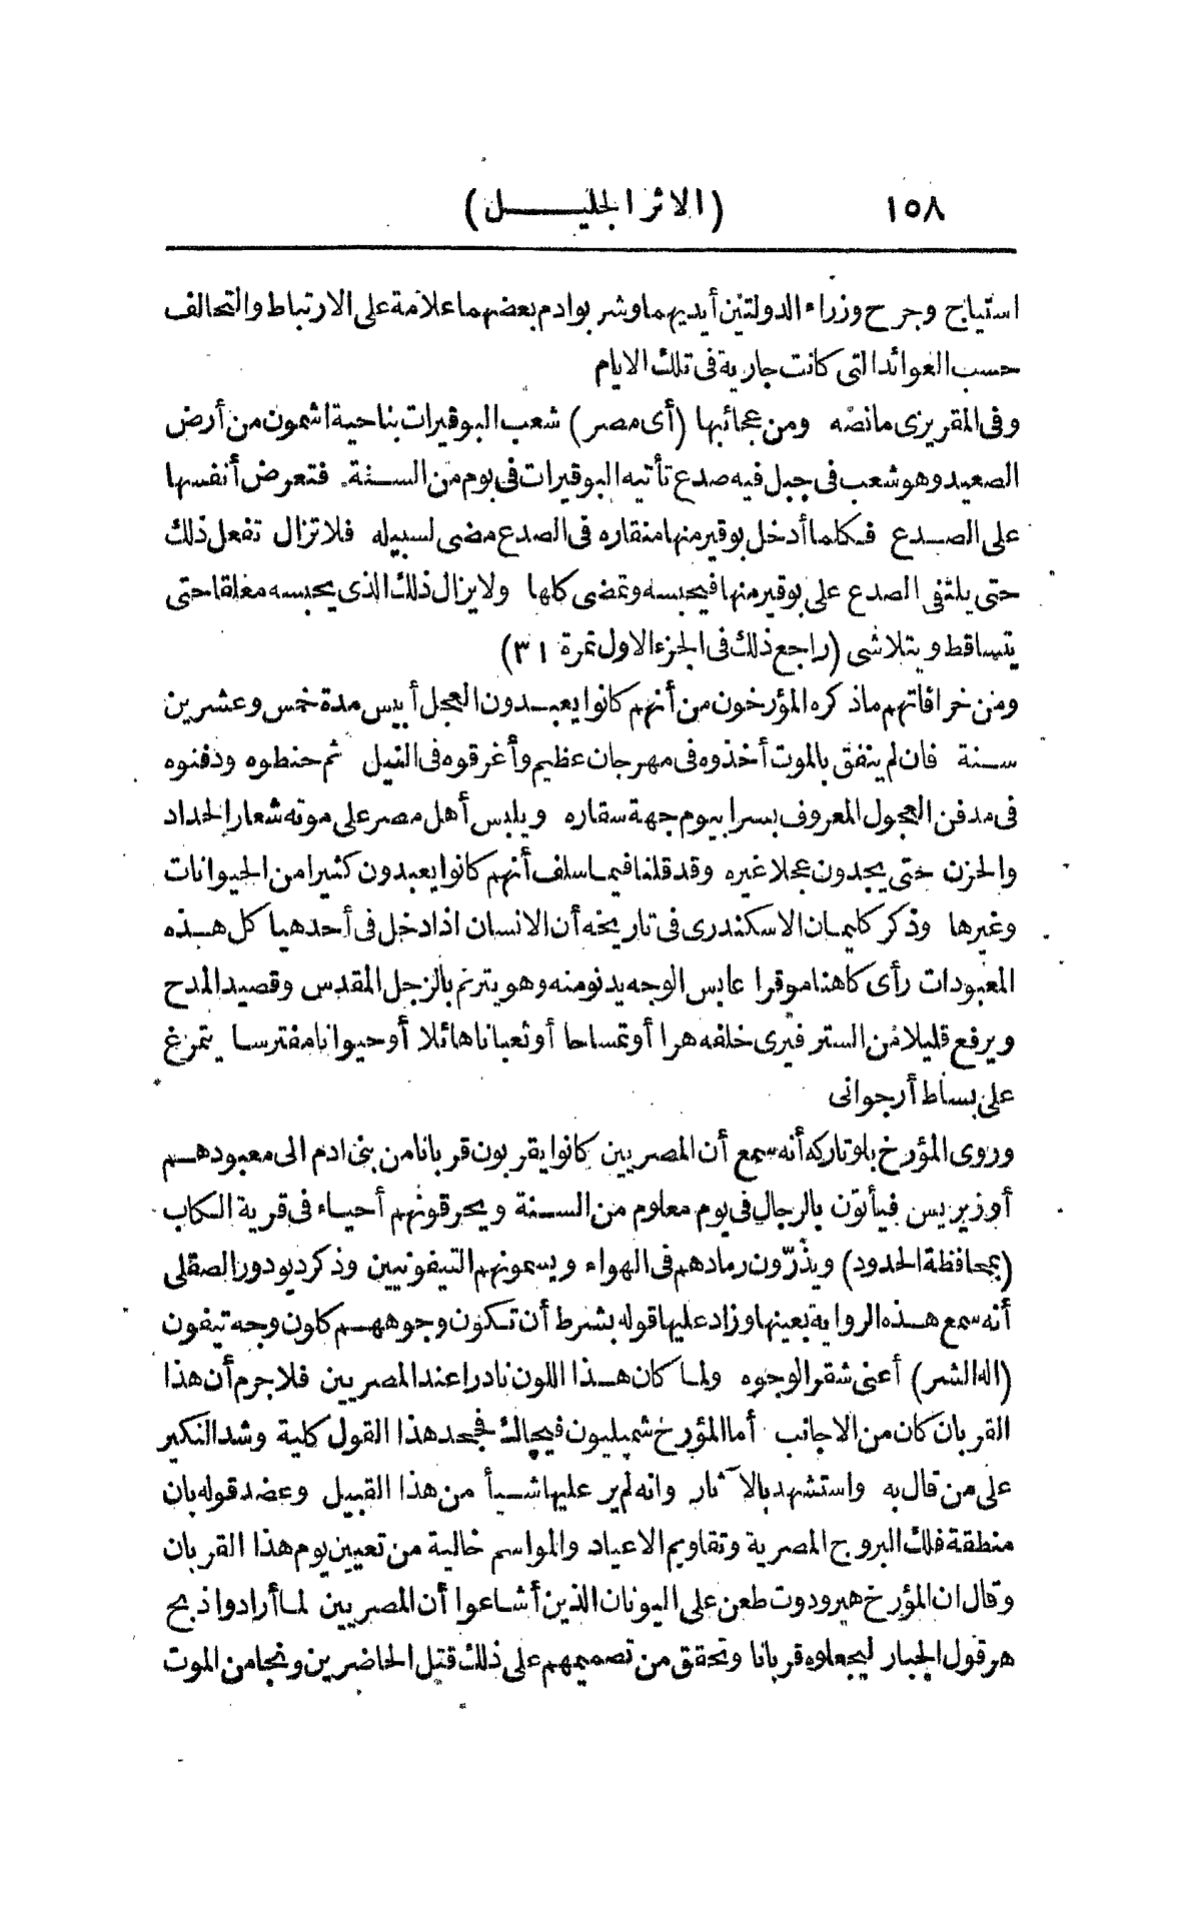 ١٥٨ (الاثر الجليل)
استياج وجرح وزراء الدولتين أيديهما وشربوا دم بعضهما علامة على الارتباط والتحالف
حسب العوائد التى كانت جارية فى تلك الايام
وفى المقريزى مانصه ومن عجائبها (أى مصر) شعب البوقيرات بناحية اشمون من أرض
الصعيد وهو شعب فى جبل فيه صدع تأتيه البوقيرات فى يوم من السنة فتعرض أنفسها
على الصدع فكلما أدخل بوقير منها منقاره فى الصدع مضى لسبيله فلاتزال تفعل ذلك
حتى يلتقى الصدع على بوقير منها فيحبسه وتمضى كلها ولايزال ذلك الذى يحبسه معلقا حتى
يتساقط ويتلاشى (راجع ذلك فى الجزء الاول نمرة ٣١)
ومن خرافاتهم ماذكره المؤرخون من أنهم كانوا يعبدون العجل أبيس مدة خمس وعشرين
سنة فان لم ينفق بالموت أخذوه فى مهرجان عظيم وأغرقوه فى النيل ثم حنطوه ودفنوه
فى مدفن العجول المعروف بسرابيوم جهة سقاره ويلبس أهل مصر على موته شعار الحداد
والحزن حتى يجدون عجلا غيره وقد قلنا فيما سلف أنهم كانوا يعبدون كثيرا من الحيوانات
وغيرها وذكر كليمان الاسكندرى فى تاريخه أن الانسان اذا دخل فى أحد هياكل هذه
المعبودات رأى كاهنا موقرا عابس الوجه يدنو منه وهو يترنم بالزجل المقدس وقصيد المدح
ويرفع قليلا من الستر فيرى خلفه هرا أو تمساحا أو ثعبانا هائلا أو حيوانا مفترسا يتمرغ
على بساط أرجوانى
وروى المؤرخ بلوتاركه أنه سمع أن المصريين كانوا يقربون قربانا من بنى ادم الى معبودهم
أوزيريس فيأتون بالرجال فى يوم معلوم من السنة ويحرقونهم أحياء فى قرية الكاب
(بمحافظة الحدود) ويذرّون رمادهم فى الهواء ويسمونهم التيفونيين وذكر ديودور الصقلى
أنه سمع هذه الرواية بعينها وزاد عليها قوله بشرط أن تكون وجوههم كلون وجه تيفون
(اله الشر) أعنى شقر الوجوه ولما كان هذا اللون نادرا عند المصريين فلاجرم أن هذا
القربان كان من الاجانب أما المؤرخ شمپليون فيچاك فجحد هذا القول كلية وشد النكير
على من قال به واستشهد بالآثار وانه لم ير عليها شيأ من هذا القبيل وعضد قوله بان
منطقة فلك البروج المصرية وتقاويم الاعياد والمواسم خالية من تعيين يوم هذا القربان
وقال ان المؤرخ هيرودوت طعن على اليونان الذين أشاعوا أن المصريين لما أرادوا ذبح
هرقول الجبار ليجعلوه قربانا وتحقق من تصميمهم على ذلك قتل الحاضرين ونجا من الموت